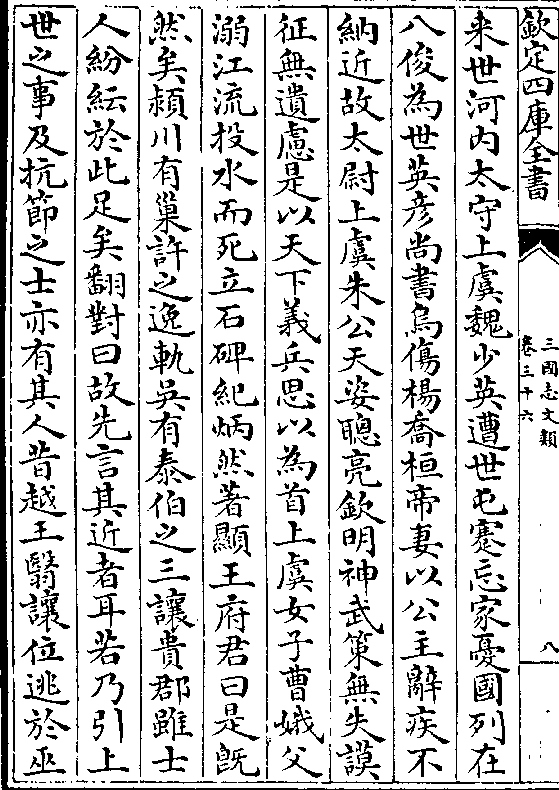 欽定四庫全書
三國志文類
卷三十六
八
来世河内太守上虞魏少英遭世屯蹇忘家憂國列在
八俊為世英彦尚書烏傷楊喬桓帝妻以公主辭疾不
納近故太尉上虞朱公天姿聰亮欽明神武策無失謨
征無遺慮是以天下義兵思以為首上虞女子曹娥父
溺江流投水而死立石碑紀炳然著顯王府君曰是旣
然矣潁川有巢許之逸軌吳有泰伯之三讓貴郡雖士
人紛紜於此足矣翻對曰故先言其近者耳若乃引上
世之事及抗節之士亦有其人昔越王翳讓位逃於巫